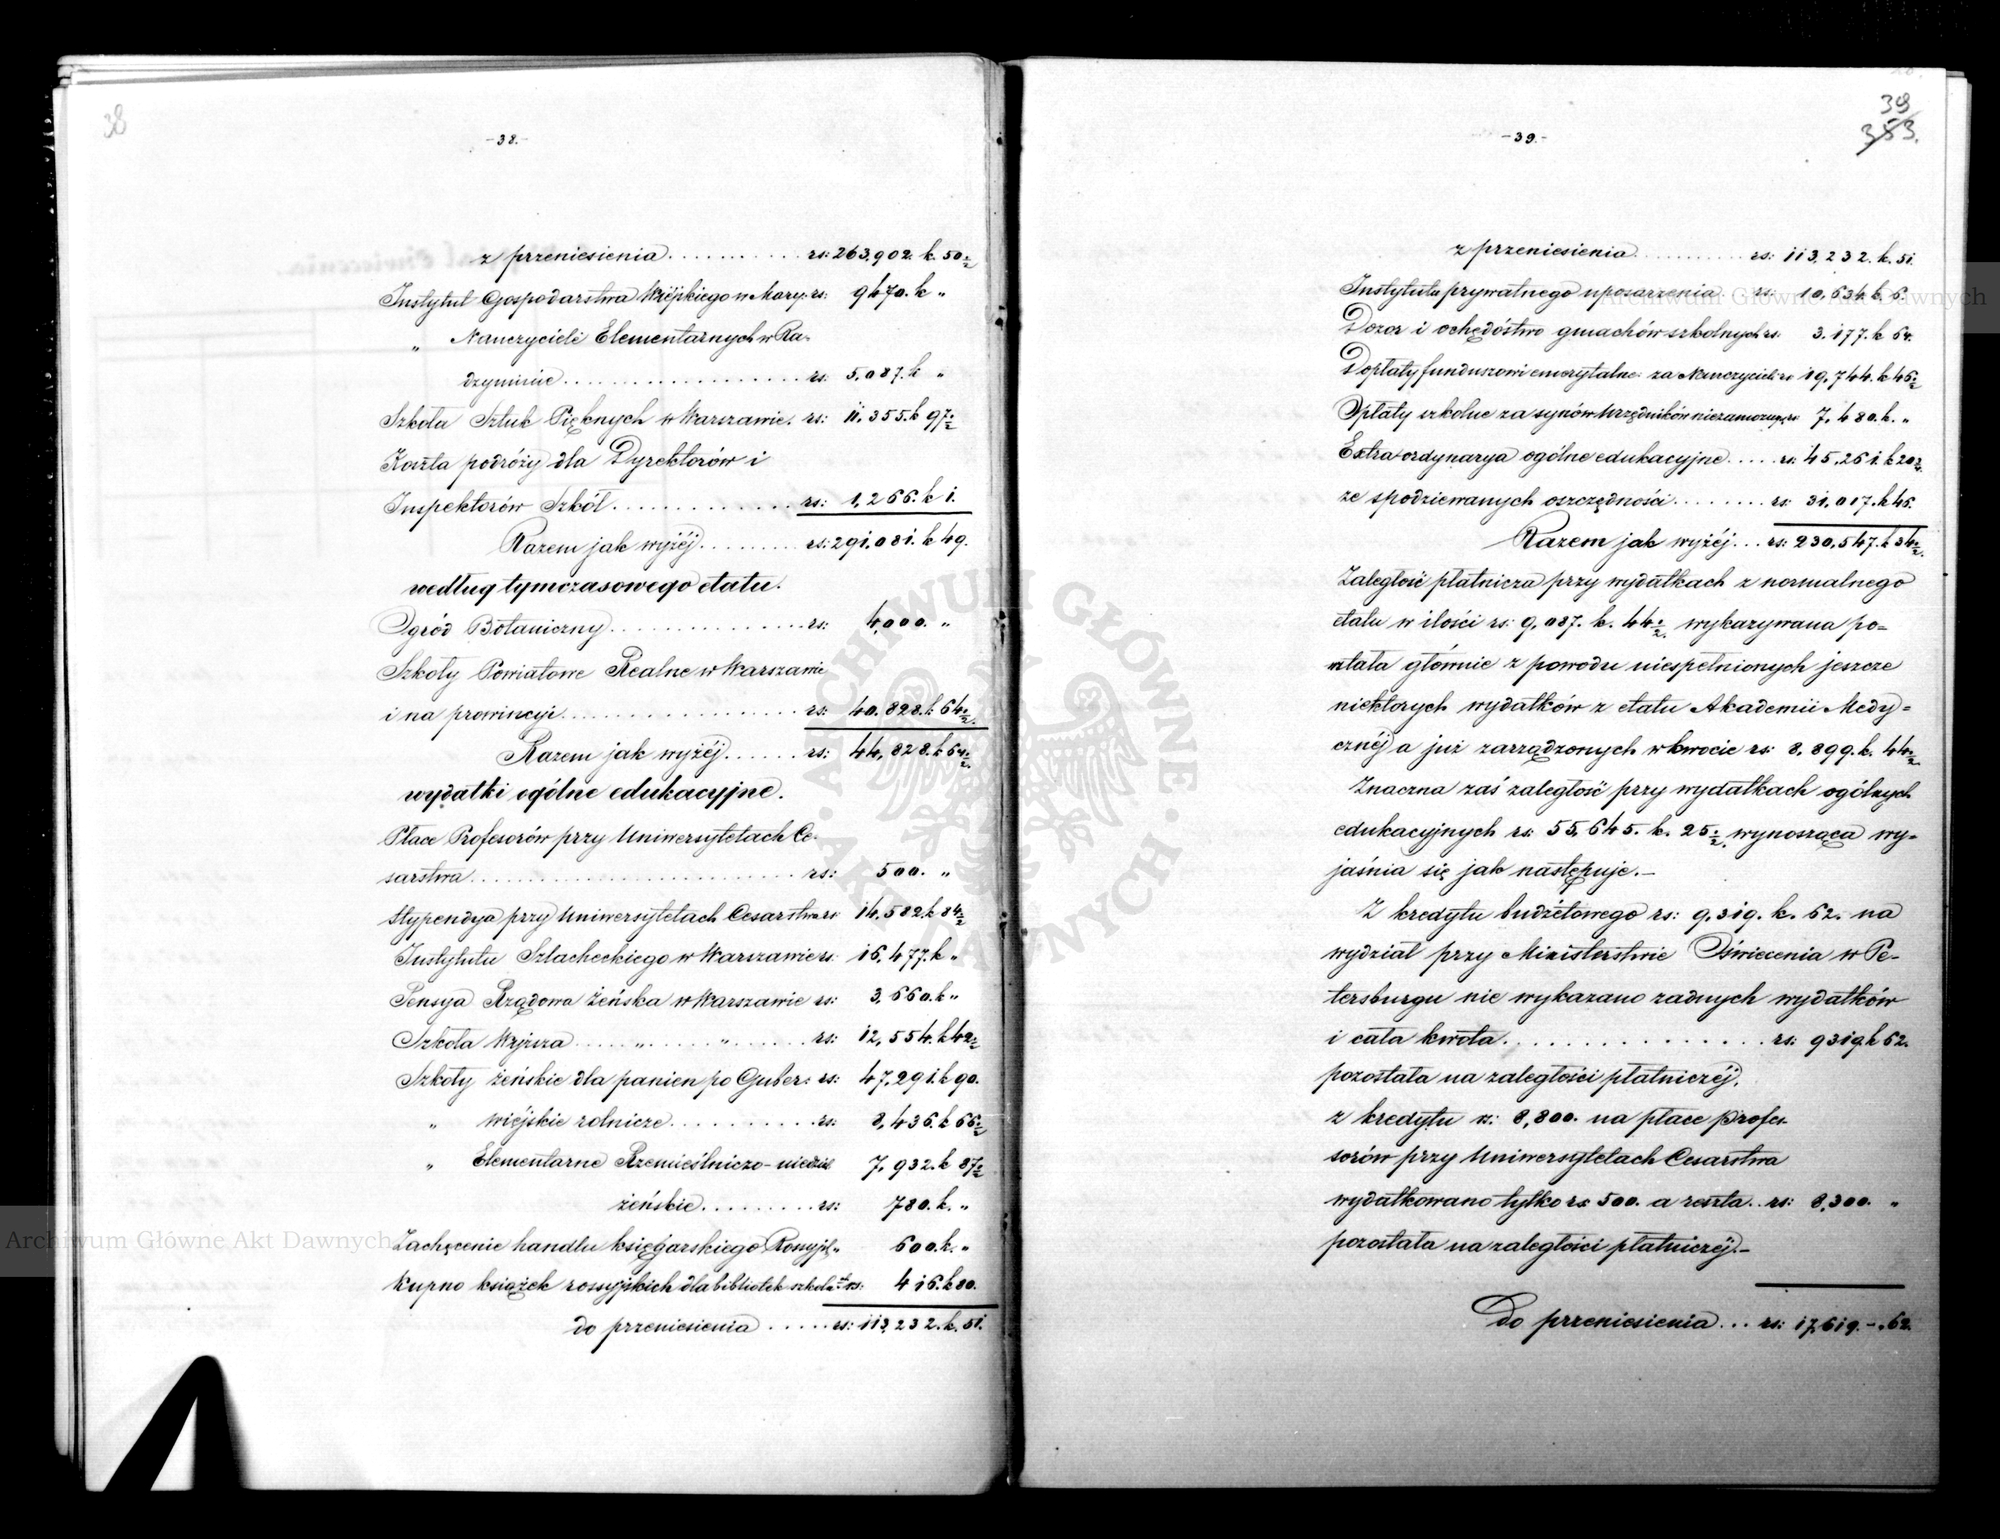 38
- 38. -
z przeniesienia . . . . . . . . . . . rs: 263,902. k. 50 ½
Instytut Gospodarstwa Wiejskiego w Mary: rs: 9470. k "
" Nauczycieli Elementarnych w Ra-
dzyminie . . . . . . . . . . . . . . . . . . . rs: 5,087. k "
Szkoła Sztuk Pięknych w Warszawie. rs: 11,355. k 97 ½
Koszta podróży dla Dyrektorów i
Inspektorów Szkół . . . . . . . . . . . . . rs: 1,266. k 1.
Razem jak wyżéj . . . . . . . . rs: 291,081. k 49.
według tymczasowego etatu.
Ogród Botaniczny . . . . . . . . . . . . . . . rs: 4,000. "
Szkoły Powiatowe Realne w Warszawie
i na prowincyi . . . . . . . . . . . . . . . . . . rs: 40,828. k 64 ½
Razem jak wyżéj . . . . . . rs: 44,828. k 64 ½
wydatki ogólne edukacyjne.
Płace Profesorów przy Uniwersytetach Ce-
sarstwa . . . . . . . . . . . . . . . . . . . . . . . . rs: 500. "
Stypendya przy Uniwersytetach Cesarstwa rs 14,582. k 84 ½
Instytutu Szlacheckiego w Warszawie rs: 16,477. k "
Pensya Rządowa żeńska w Warszawie rs: 3,660. k "
Szkoła Wyższa . . . . . " . . . . . " . . . . . . rs: 12,554. k 42 ½
Szkoły żeńskie dla panien po Guber: rs: 47,291. k 90.
" wiejskie rolnicze . . . . . . . . . . . rs: 8,436. k 66 ½
" Elementarne Rzemieślniczo-niedziel 7,932. k 87 ½
żeńskie . . . . . . . . . rs: 780. k. "
Zachęcenie handlu księgarskiego Rossyjs. " 600. k. "
Kupno książek rossyjskich dla bibliotek szkoln: rs: 416. k 80.
do przeniesienia . . . . . rs: 113,232. k. 51.
39
353.
- 39. -
z przeniesienia . . . . . . . . . . . rs: 113,232. k. 51.
Instytutu prywatnego uposażenia . rs: 10,634 k 6.
Dozór i ochędóstwo gmachów szkolnych rs. 3,177. k 64.
Dopłaty funduszowi emerytalne: za Nauczycieli rs 19,744. k 46 ½
Opłaty szkolne za synów Urzędników niezamożnych rs 7,480. k. "
Extraordynarya ogólne edukacyjne . . . . . rs: 45,261. k 20 ½
ze spodziewanych oszczędności . . . . . . . . rs: 31,017. k 46.
Razem jak wyżéj . . . rs: 230,547. k 34 ½
Zaległość płatnicza przy wydatkach z normalnego
etatu w ilości rs: 9,087. k. 44 ½ wykazywana po-
wstała głównie z powodu niespełnionych jeszcze
niektórych wydatków z etatu Akademii Medy-
cznéj a już zarządzonych w kwocie rs: 8,899. k. 44 ½
Znaczna zaś zaległość przy wydatkach ogólnych
edukacyjnych rs: 55,645. k. 25 ½ wynosząca wy-
jaśnia się jak następuje. –
Z kredytu budżetowego rs: 9,319. k. 62. na
wydział przy Ministerstwie Oświecenia w Pe-
tersburgu nie wykazano żadnych wydatków
i cała kwota . . . . . . . . . . . . . . . rs: 9319. k 62.
pozostała na zaległości płatniczéj.
z kredytu rs: 8,800. na płace Profes-
sorów przy Uniwersytetach Cesarstwa
wydatkowano tylko rs 500. a reszta . . rs: 8,300. "
pozostała na zaległości płatniczéj. –
Do przeniesienia . . . rs: 17,619. – . 62.
ARCHIWUM GŁÓWNE AKT DAWNYCH
Archiwum Główne Akt Dawnych
Archiwum Główne Akt Dawnych